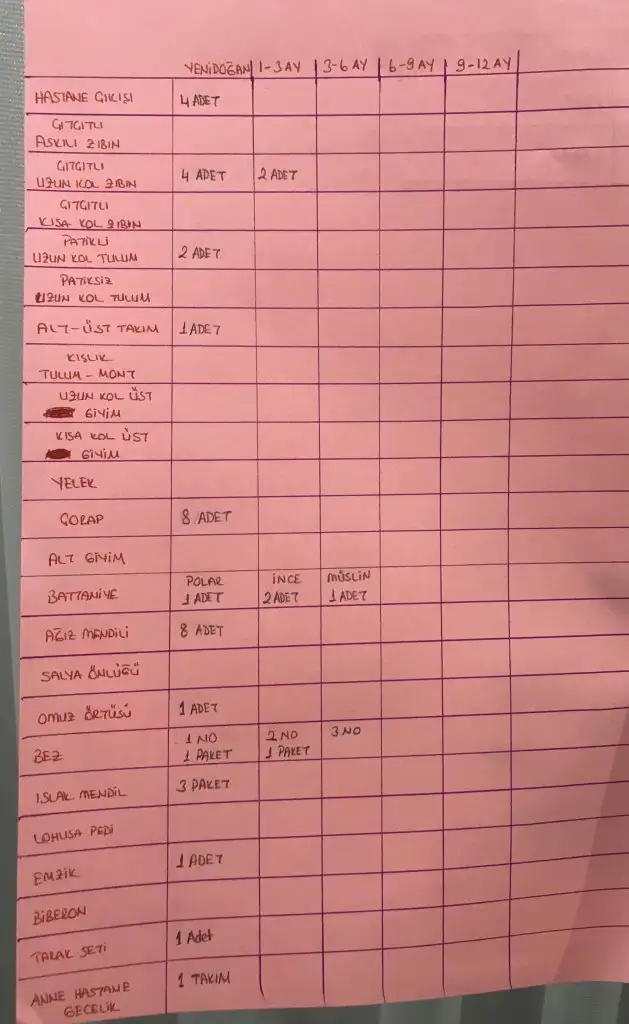 YENİDOĞAN 1-3 AY 3-6 AY 6-9 AY 9-12 AY
HASTANE ÇIKIŞI 4 ADET
ÇITÇITLI
ASKILI ZIBIN
ÇITÇITLI
UZUN KOL ZIBIN 4 ADET 2 ADET
ÇITÇITLI
KISA KOL ZIBIN
PATİKLİ
UZUN KOL TULUM 2 ADET
PATİKSİZ
UZUN KOL TULUM
ALT-ÜST TAKIM 1 ADET
KIŞLIK
TULUM - MONT
UZUN KOL ÜST
GİYİM
KISA KOL ÜST
GİYİM
YELEK
ÇORAP 8 ADET
ALT GİYİM
POLAR İNCE MÜSLİN
BATTANİYE 1 ADET 2 ADET 1 ADET
AĞIZ MENDİLİ 8 ADET
SALYA ÖNLÜĞÜ
OMUZ ÖRTÜSÜ 1 ADET
1 NO 2 NO 3 NO
BEZ 1 PAKET 1 PAKET
ISLAK MENDİL 3 PAKET
LOHUSA PEDİ
EMZİK 1 ADET
BİBERON
TARAK SETİ 1 Adet
ANNE HASTANE 1 TAKIM
GECELİK